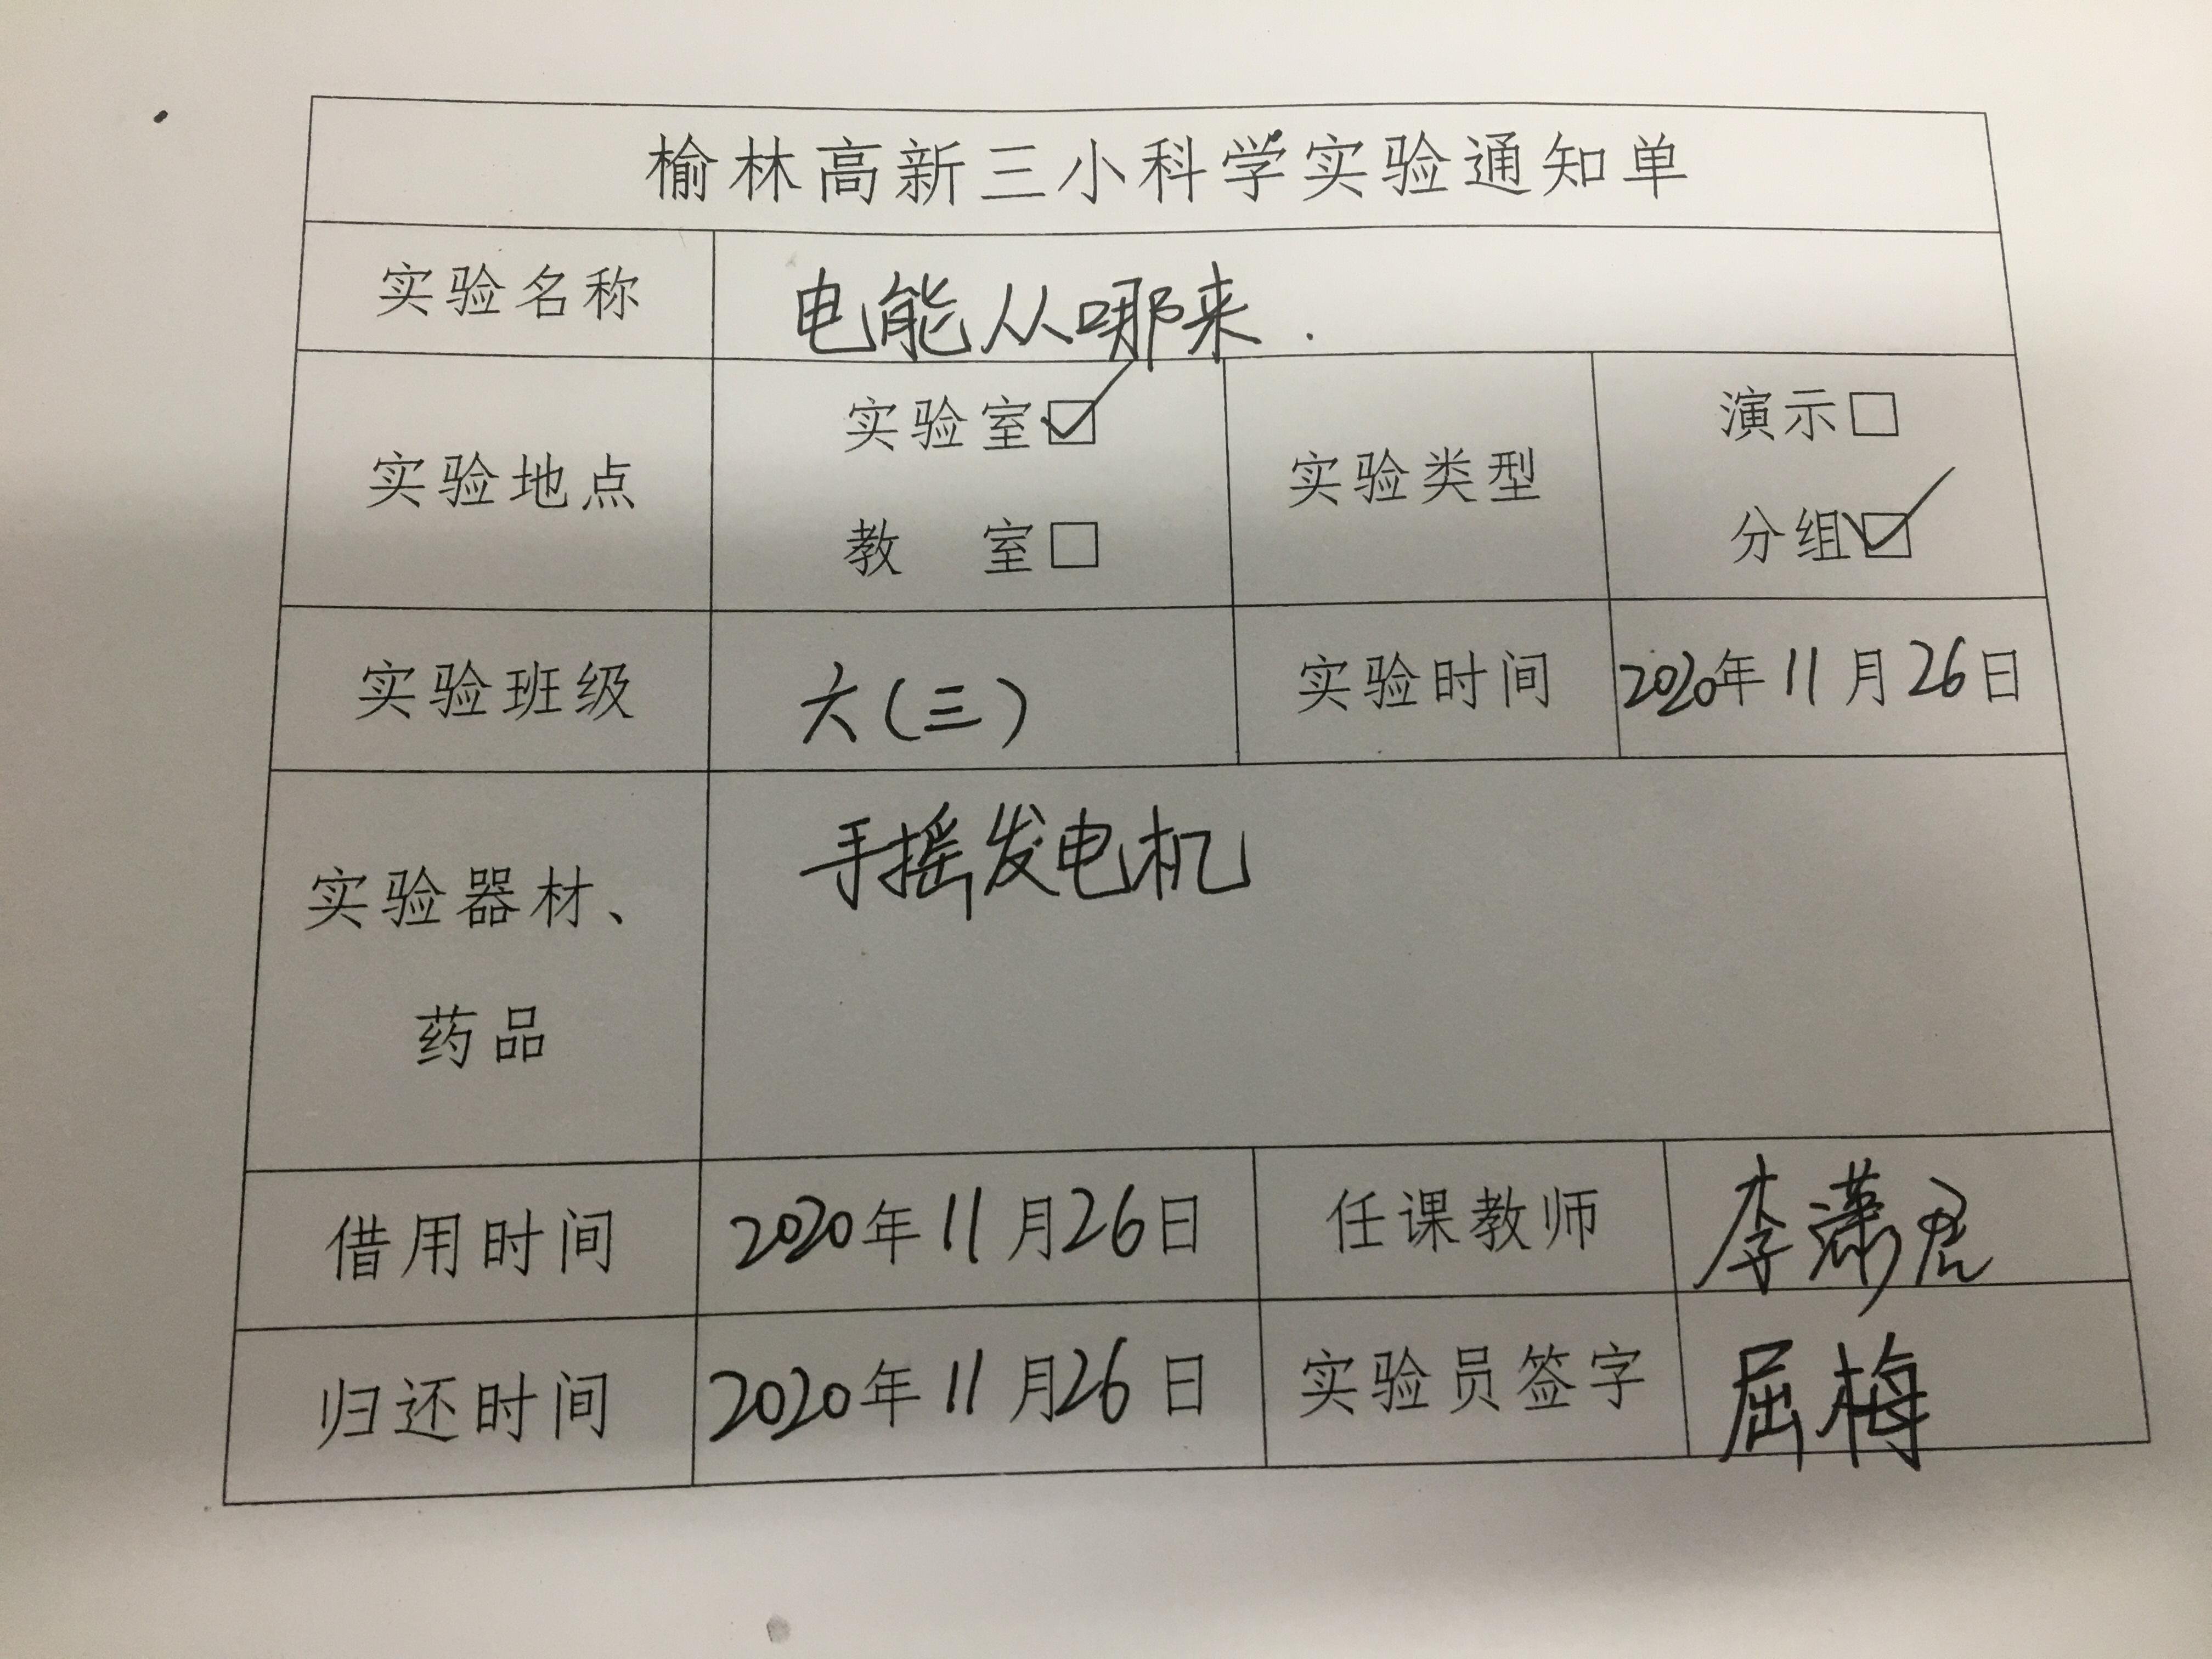 榆林高新三小科学实验通知单
实验名称 电能从哪来.
实验地点 实验室☑ 教 室□ 实验类型 演示□ 分组☑
实验班级 六(三) 实验时间 2020年11月26日
实验器材、药品 手摇发电机
借用时间 2020年11月26日 任课教师 李潇
归还时间 2020年11月26日 实验员签字 屈梅